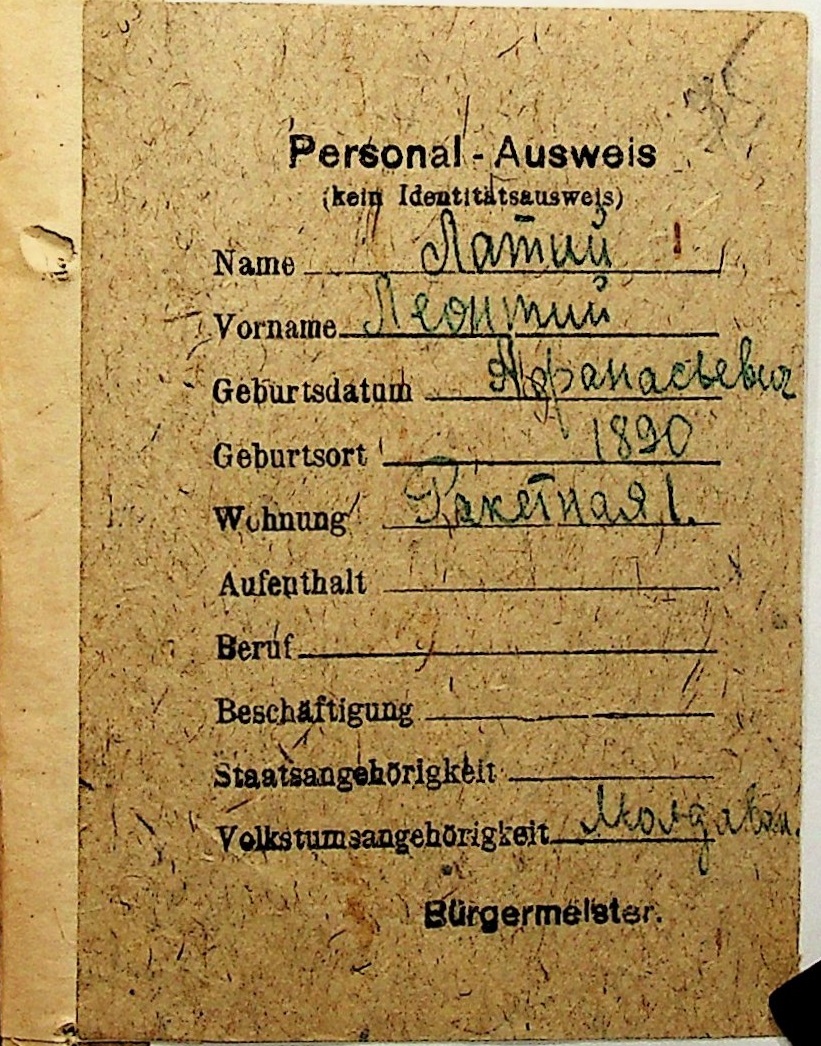 35
Personal - Ausweis
(kein Identitätsausweis)
Name Латий
Vorname Леонтий
Geburtsdatum Афранасьевич
Geburtsort 1890
Wohnung Ракетная 1.
Aufenthalt
Beruf
Beschäftigung
Staatsangehörigkeit
Volkstumsangehörigkeit Молдаван.
Bürgermeister.